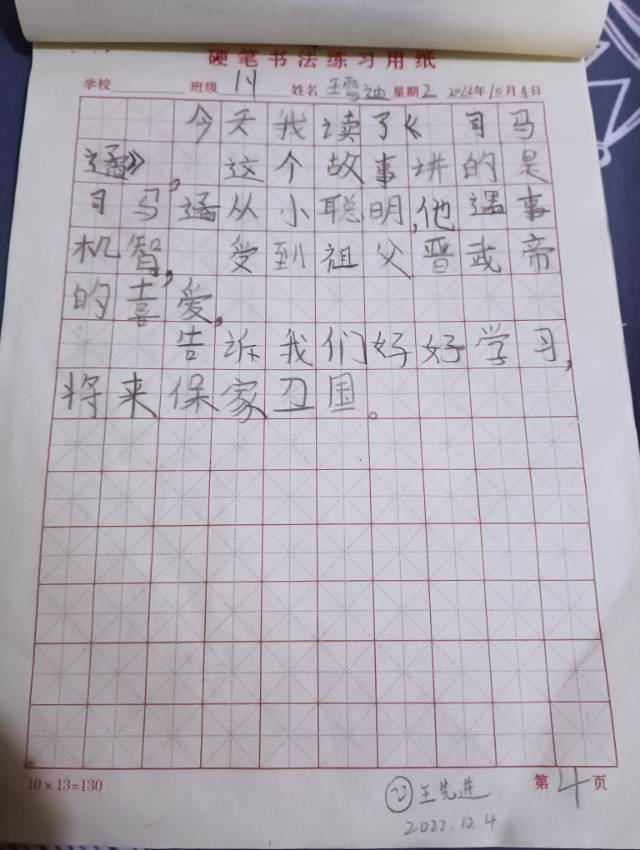 硬笔书法练习用纸
学校 班级 姓名 王雪迪 星期2 2022年10月4日
今天我读了《司马
遹》，这个故事讲的是
司马遹从小聪明,他遇事
机智，受到祖父晋武帝
的喜爱，
告诉我们好好学习，
将来保家卫国。
10×13=130 第4页
王先进
2022.12.4